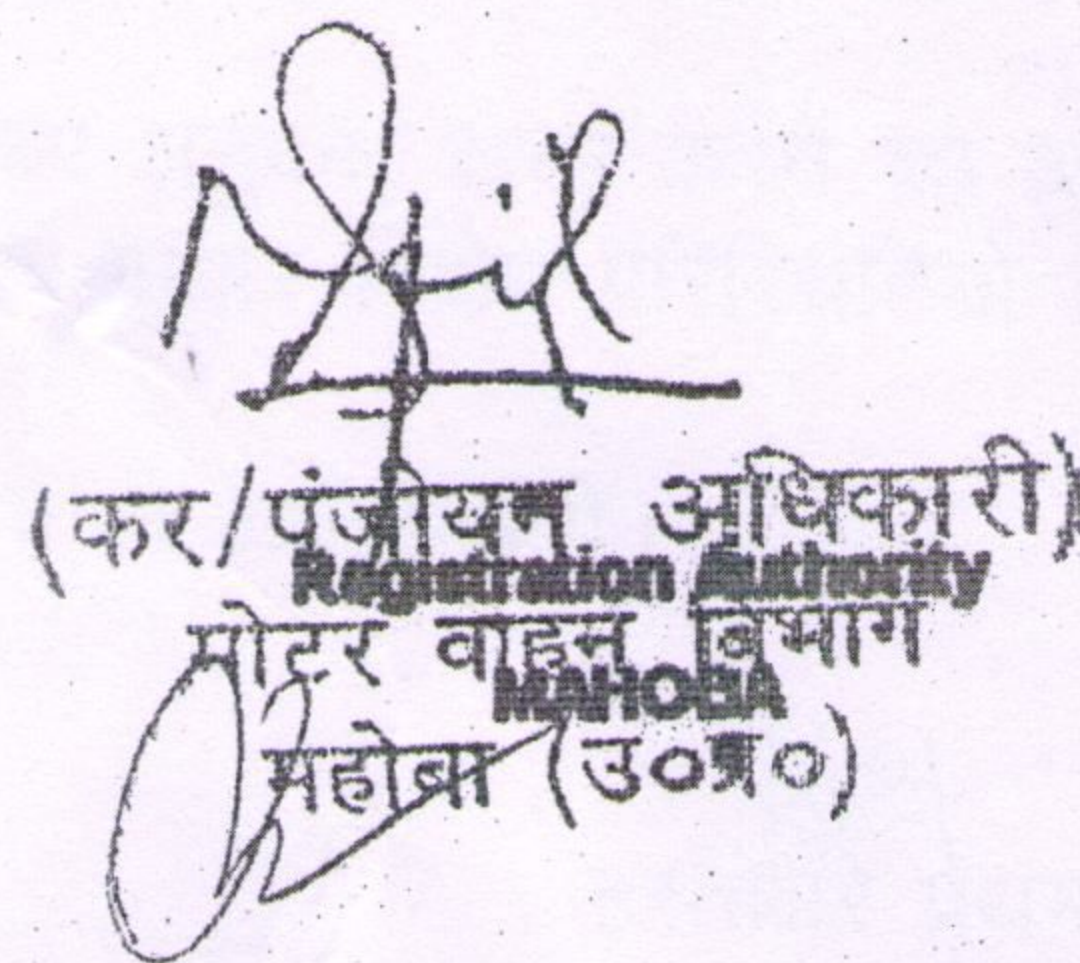 (कर/पंजीयन अधिकारी)
Registration Authority
मोटर वाहन विभाग
MAHOBA
महोबा (उ०प्र०)